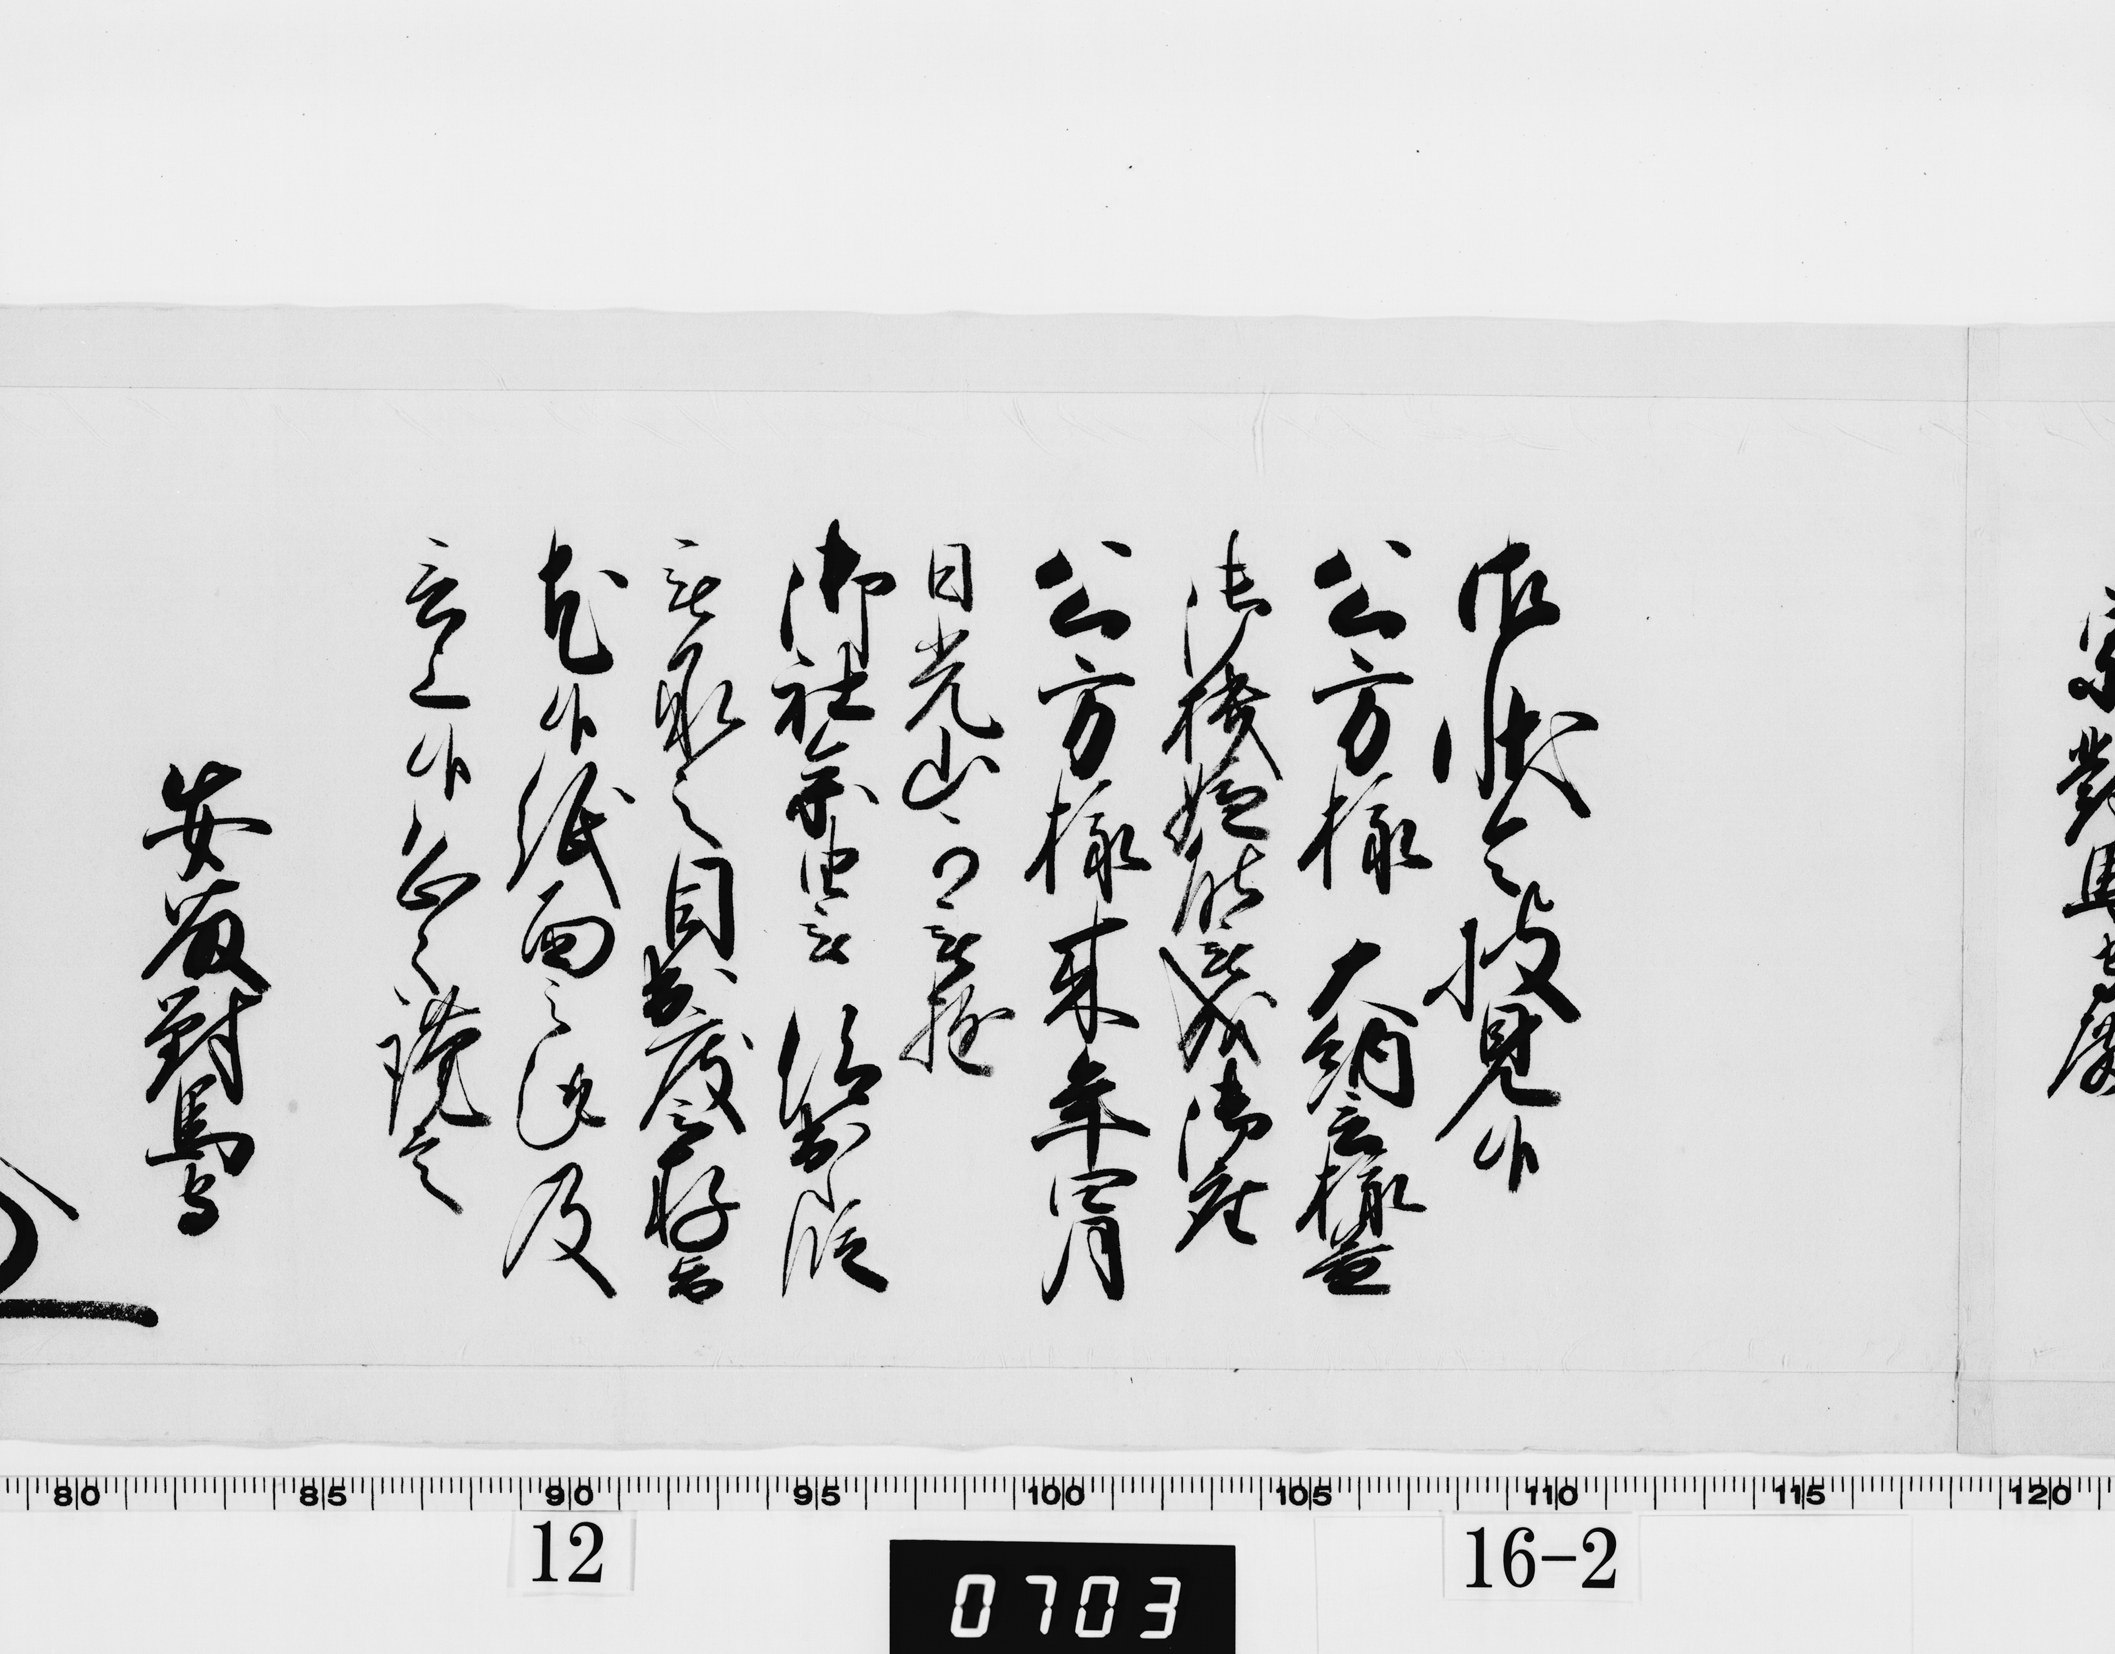 宗對馬守殿
御状令披見候
公方様 大納言様益
御機嫌能被成御座
公方様来年四月
日光山江可被遊
御社参由被 仰出段
被承之目出度被存旨
尤候紙面之趣及
言上候恐々謹言
安藤對馬守
80 85 90 95 100 105 110 115 120
12
0703
16-2